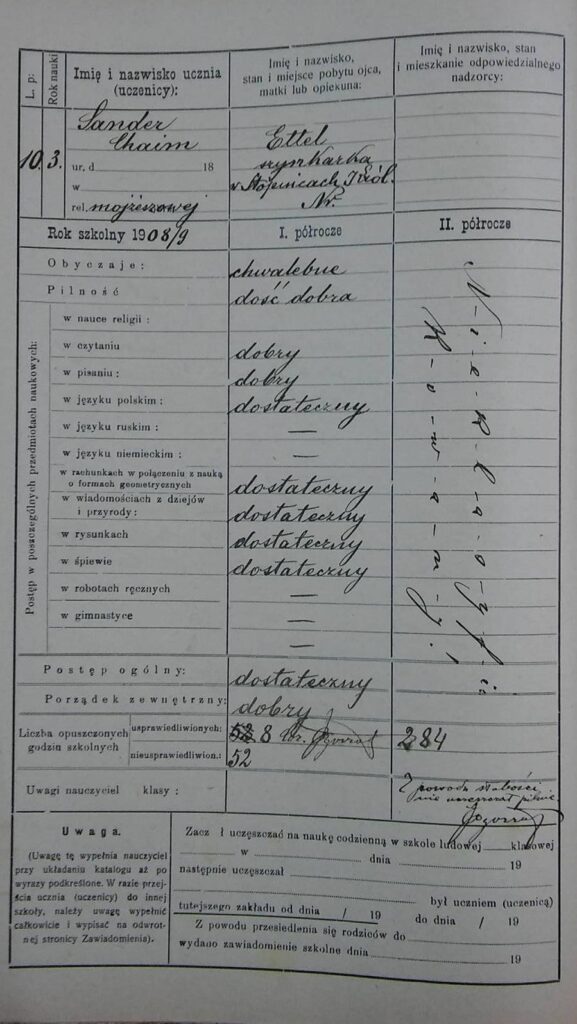 L. p:
Rok nauki
Imię i nazwisko ucznia
(uczenicy):
Imię i nazwisko,
stan i miejsce pobytu ojca,
matki lub opiekuna:
Imię i nazwisko, stan
i mieszkanie odpowiedzialnego
nadzorcy:
10. 3.
Sander
Chaim
ur. d 18
w
rel. mojżeszowej
Ettel
szynkarka
w Stopnicach Król.
Nr.
Rok szkolny 1908/9
I. półrocze
II. półrocze
Obyczaje: chwalebne
Pilność dość dobra
Postęp w poszczególnych przedmiotach naukowych:
w nauce religii:
w czytaniu dobry
w pisaniu: dobry
w języku polskim: dostateczny
w języku ruskim: —
w języku niemieckim: —
w rachunkach w połączeniu z nauką
o formach geometrycznych dostateczny
w wiadomościach z dziejów
i przyrody: dostateczny
w rysunkach dostateczny
w śpiewie dostateczny
w robotach ręcznych —
w gimnastyce —
—
Postęp ogólny: dostateczny
Porządek zewnętrzny: dobry
Liczba opuszczonych
godzin szkolnych
usprawiedliwionych: 8 284
nieusprawiedliwion.: 52
Uwagi nauczyciel klasy:
Z powodu słabości
nie
Uwaga.
(Uwagę tę wypełnia nauczyciel
przy układaniu katalogu aż po
wyrazy podkreślone. W razie przej-
ścia ucznia (uczenicy) do innej
szkoły, należy uwagę wypełnić
całkowicie i wypisać na odwrot-
nej stronicy Zawiadomienia).
Zacz ł uczęszczać na naukę codzienną w szkole ludowej klasowej
w dnia 19
następnie uczęszczał
był uczniem (uczenicą)
tutejszego zakładu od dnia / 19 do dnia / 19
Z powodu przesiedlenia się rodziców do
wydano zawiadomienie szkolne dnia 19